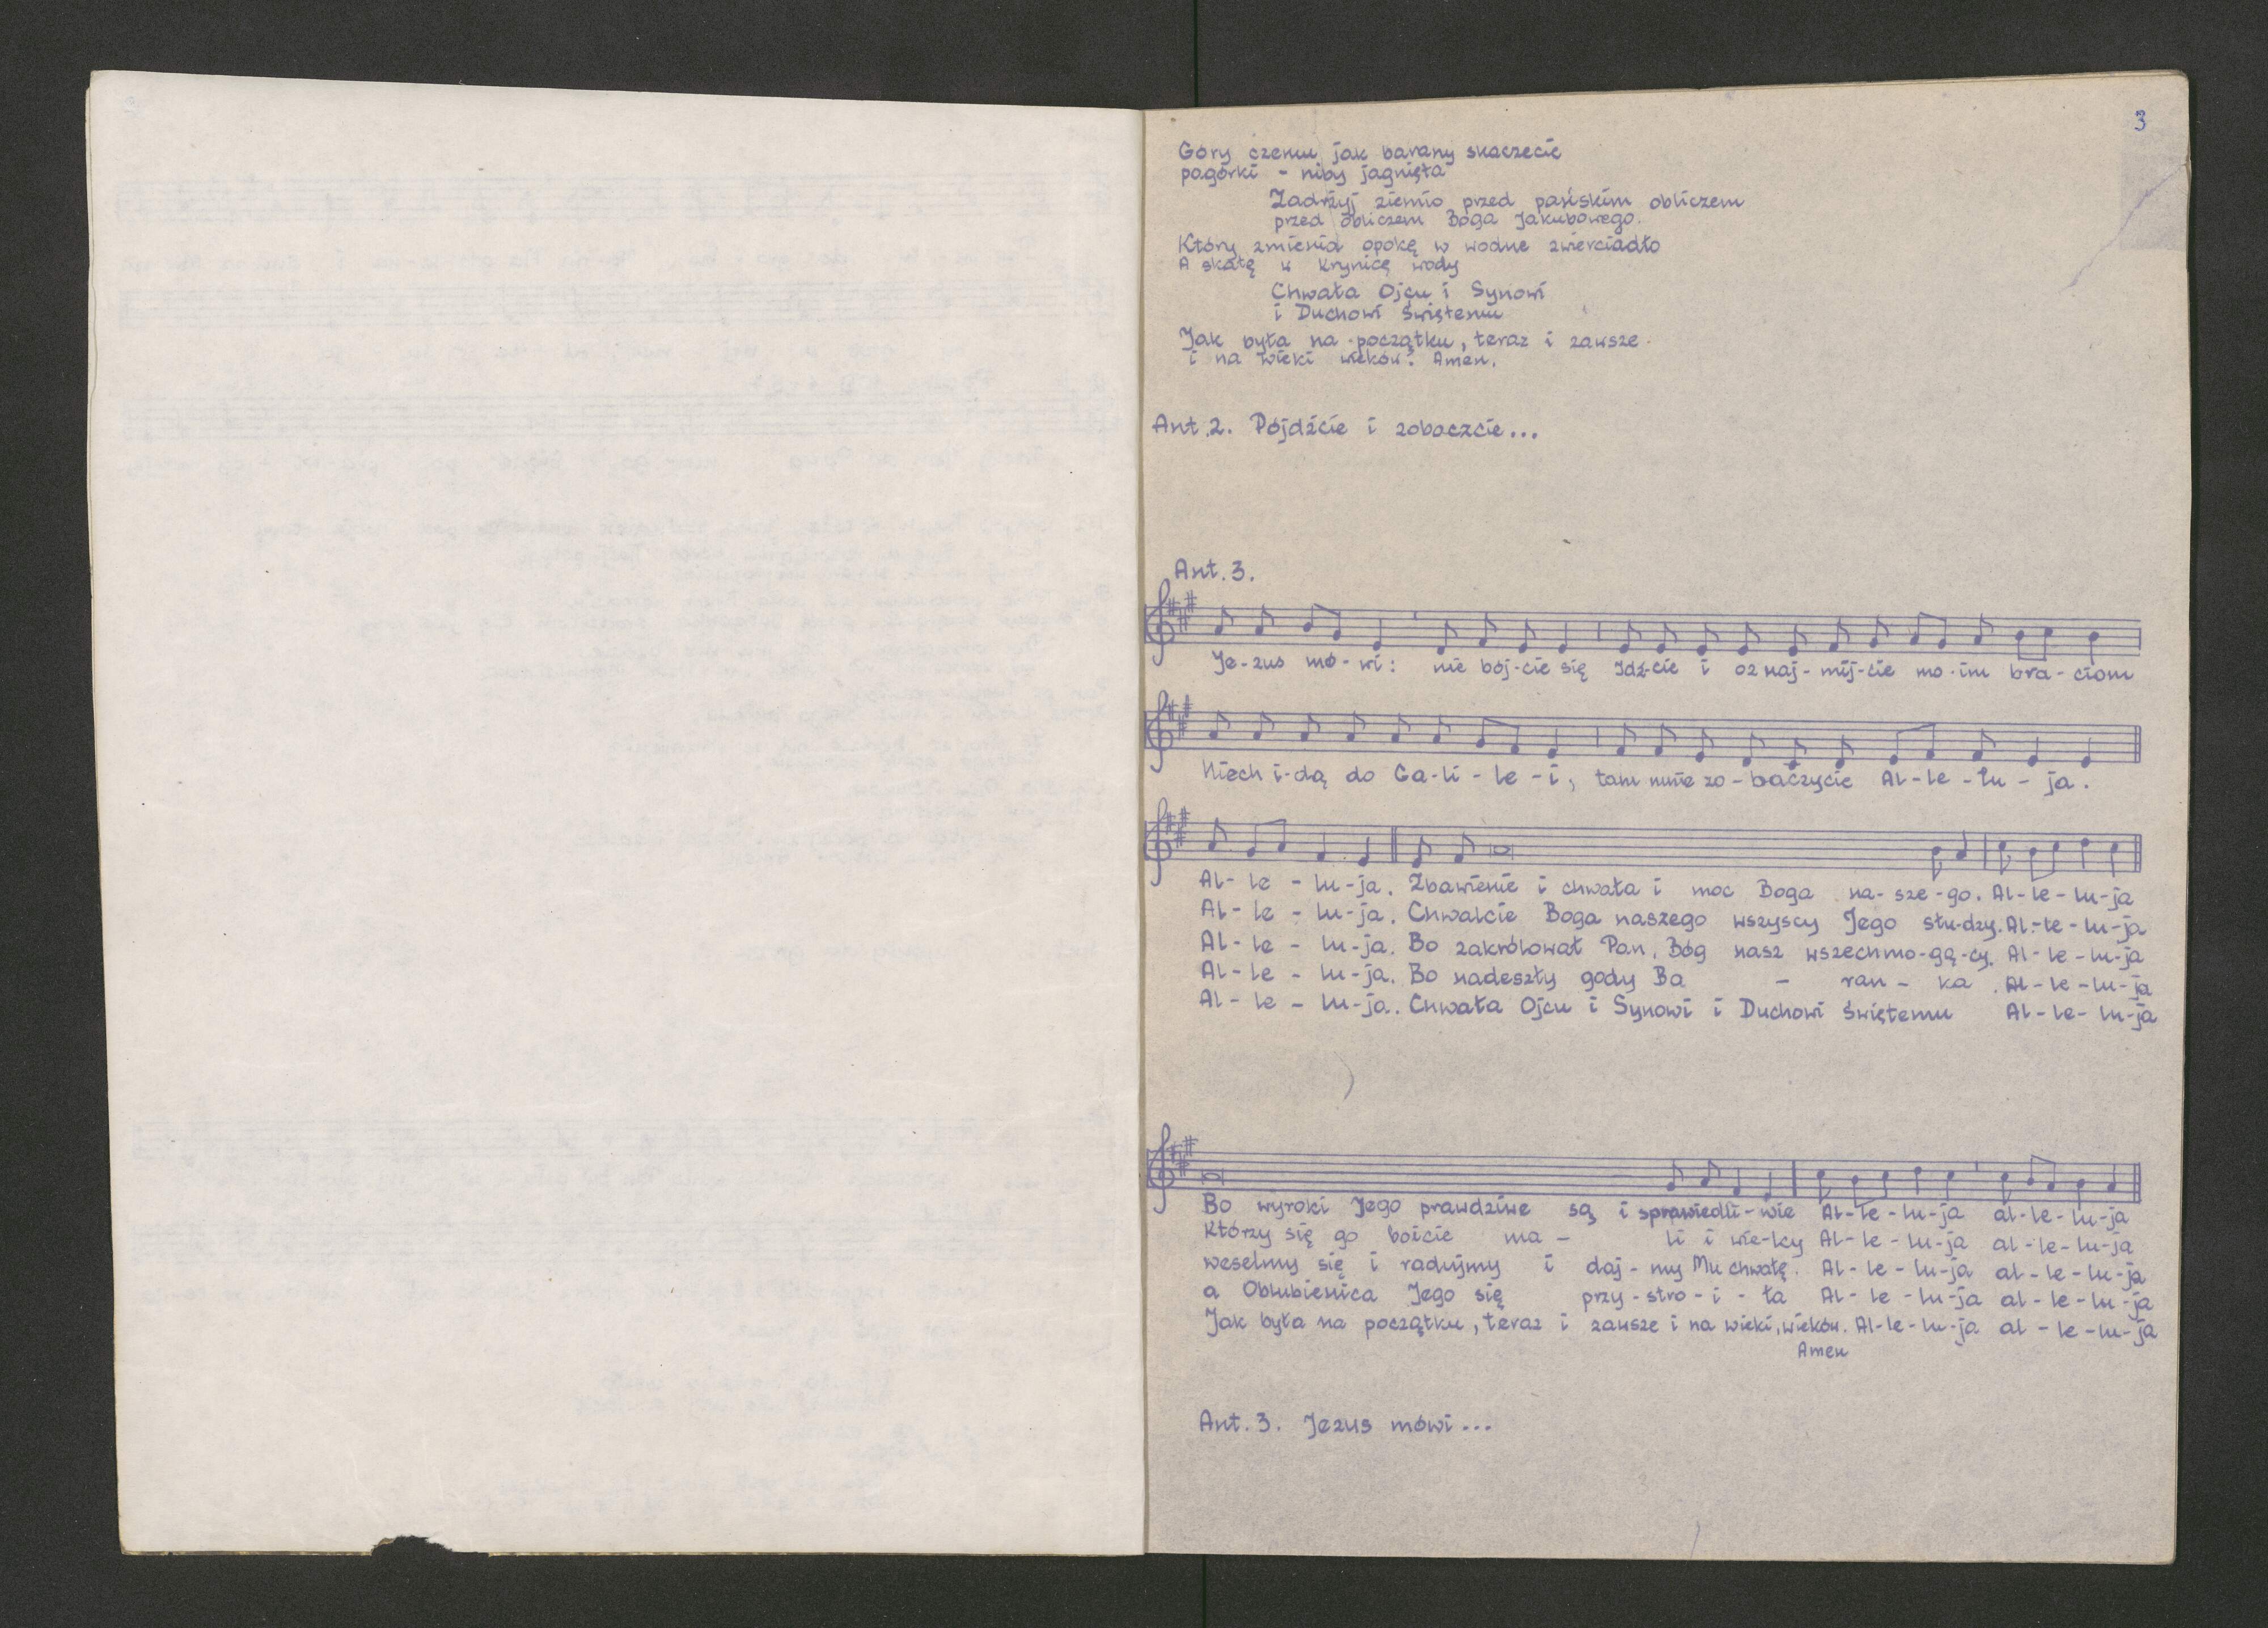 3
Góry czemu jak barany skaczecie
pagórki - niby jagnięta
Zadrżyj ziemio przed pańskim obliczem
przed obliczem Boga Jakubowego.
Który zmienia opokę w wodne zwierciadło
A skałę w krynicę wody
Chwała Ojcu i Synowi
i Duchowi Świętemu
Jak była na początku, teraz i zawsze
i na wieki wieków. Amen.
Ant. 2. Pójdźcie i zobaczcie...
Ant. 3.
Je-zus mó-wi: nie bój-cie się Idź-cie i oznaj-mij-cie mo-im bra-ciom
Niech i-dą do Ga-li-le-i, tam mnie zo-baczycie Al-le-lu-ja.
Al-le-lu-ja. Zbawienie i chwała i moc Boga na-sze-go. Al-le-lu-ja
Al-le-lu-ja. Chwalcie Boga naszego wszyscy Jego słu-dzy. Al-le-lu-ja
Al-le-lu-ja. Bo zakrólował Pan, Bóg nasz wszechmo-gą-cy. Al-le-lu-ja
Al-le-lu-ja. Bo nadeszły gody Ba - ran - ka. Al-le-lu-ja
Al-le-lu-ja. Chwała Ojcu i Synowi i Duchowi Świętemu Al-le-lu-ja
Bo wyroki Jego prawdziwe są i sprawiedli-wie Al-le-lu-ja al-le-lu-ja
Którzy się go boicie ma - li i wie-lcy Al-le-lu-ja al-le-lu-ja
weselmy się i radujmy i daj-my Mu chwałę. Al-le-lu-ja al-le-lu-ja
a Oblubienica Jego się przy-stro-i-ła Al-le-lu-ja al-le-lu-ja
Jak była na początku, teraz i zawsze i na wieki, wieków. Al-le-lu-ja al-le-lu-ja
Amen
Ant. 3. Jezus mówi...